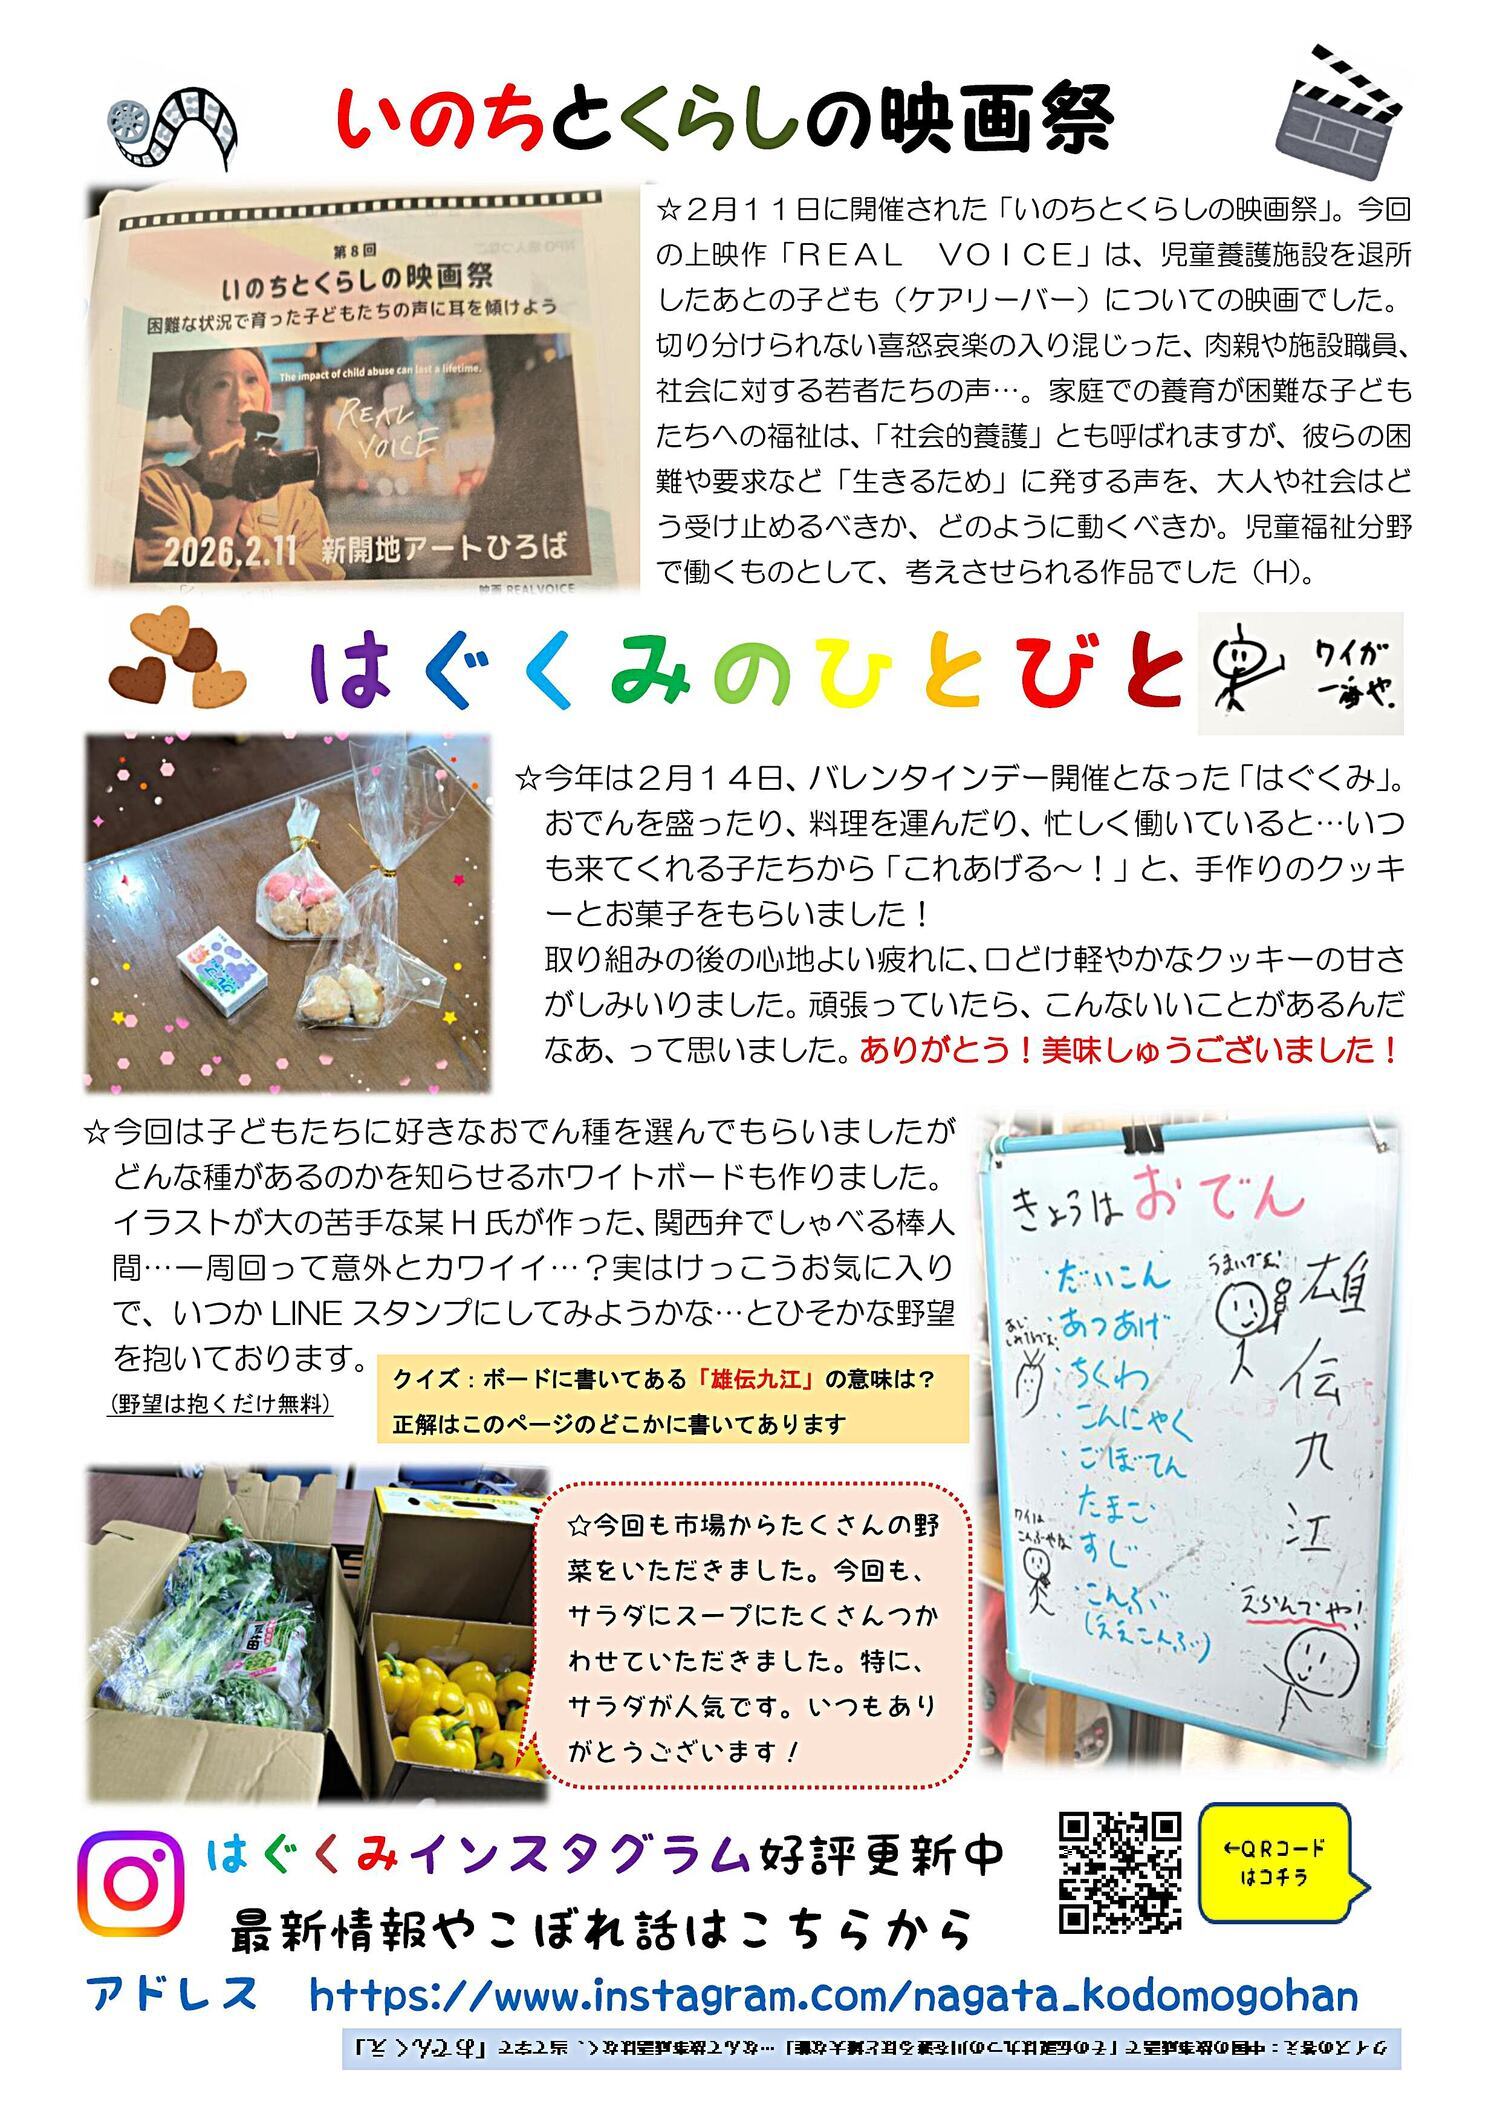 いのちとくらしの映画祭
第8回
いのちとくらしの映画祭
困難な状況で育った子どもたちの声に耳を傾けよう
The impact of child abuse can last a lifetime.
REAL
VOICE
2026.2.11 新開地アートひろば
映画 REALVOICE
☆２月１１日に開催された「いのちとくらしの映画祭」。今回
の上映作「ＲＥＡＬ　ＶＯＩＣＥ」は、児童養護施設を退所
したあとの子ども（ケアリーバー）についての映画でした。
切り分けられない喜怒哀楽の入り混じった、肉親や施設職員、
社会に対する若者たちの声…。家庭での養育が困難な子ども
たちへの福祉は、「社会的養護」とも呼ばれますが、彼らの困
難や要求など「生きるため」に発する声を、大人や社会はど
う受け止めるべきか、どのように動くべきか。児童福祉分野
で働くものとして、考えさせられる作品でした（H）。
はぐくみのひとびと
ワイが
一番や.
☆今年は２月１４日、バレンタインデー開催となった「はぐくみ」。
おでんを盛ったり、料理を運んだり、忙しく働いていると…いつ
も来てくれる子たちから「これあげる～！」と、手作りのクッキ
ーとお菓子をもらいました！
取り組みの後の心地よい疲れに、口どけ軽やかなクッキーの甘さ
がしみいりました。頑張っていたら、こんないいことがあるんだ
なあ、って思いました。ありがとう！美味しゅうございました！
☆今回は子どもたちに好きなおでん種を選んでもらいましたが
どんな種があるのかを知らせるホワイトボードも作りました。
イラストが大の苦手な某H氏が作った、関西弁でしゃべる棒人
間…一周回って意外とカワイイ…？実はけっこうお気に入り
で、いつか LINE スタンプにしてみようかな…とひそかな野望
を抱いております。
（野望は抱くだけ無料）
クイズ：ボードに書いてある「雄伝九江」の意味は？
正解はこのページのどこかに書いてあります
きょうはおでん
・だいこん
・あつあげ
・ちくわ
・こんにゃく
・ごぼてん
・たまご
・すじ
・こんぶ
（ええこんぶ）
うまいでえ!
ワイは
こんぶやな
雄伝九江
えらんでや!
☆今回も市場からたくさんの野
菜をいただきました。今回も、
サラダにスープにたくさんつか
わせていただきました。特に、
サラダが人気です。いつもあり
がとうございます！
はぐくみインスタグラム好評更新中
最新情報やこぼれ話はこちらから
←QRコード
はコチラ
アドレス　https://www.instagram.com/nagata_kodomogohan
クイズの答え：中国の故事成語で「その伝達は九つの川を渡るほど雄大な様」…なんて故事成語はなく、当て字で「おでんくえ」